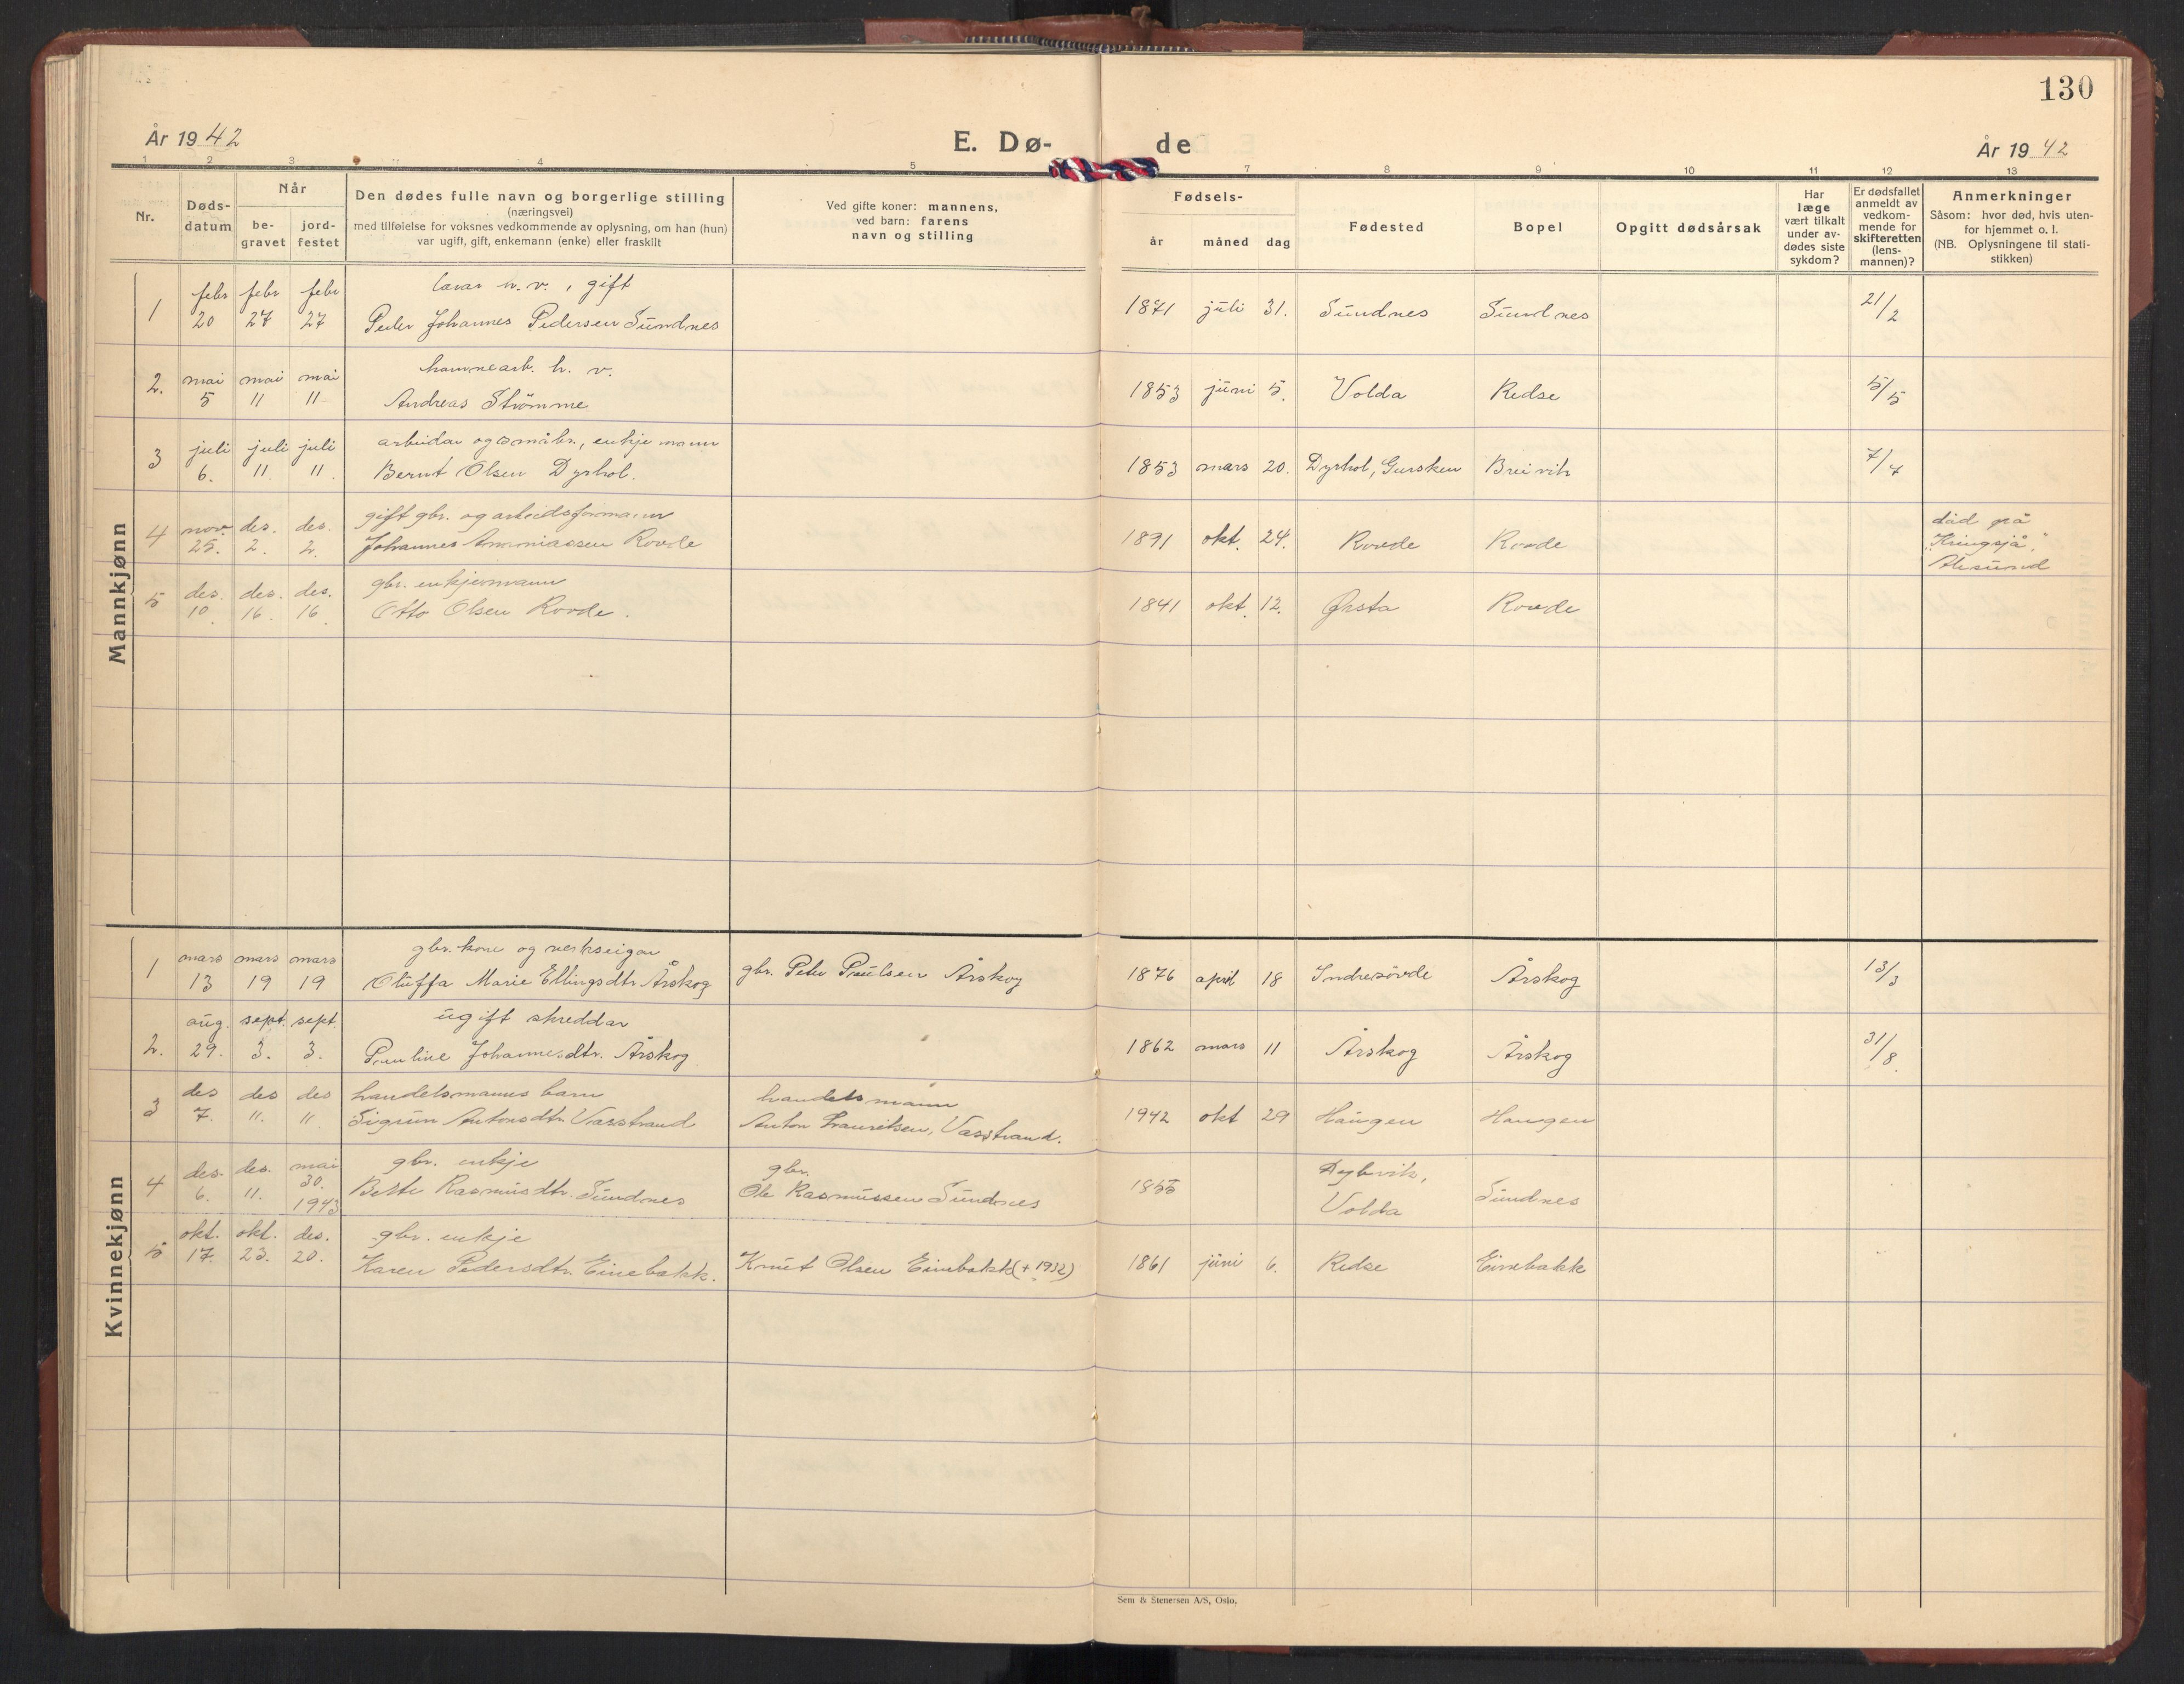 130
År 1942
E. Dø-
de
År 1942
1 2 3 4 5 7 8 9 10 11 12 13
Nr.
Døds-
datum
Når
be-
gravet
jord-
festet
Den dødes fulle navn og borgerlige stilling
(næringsvei)
med tilføielse for voksnes vedkommende av oplysning, om han (hun)
var ugift, gift, enkemann (enke) eller fraskilt
Ved gifte koner: mannens,
ved barn: farens
navn og stilling
Fødsels-
år måned dag
Fødested
Bopel
Opgitt dødsårsak
Har
læge
vært tilkalt
under av-
dødes siste
sykdom?
Er dødsfallet
anmeldt av
vedkom-
mende for
skifteretten
(lens-
mannen)?
Anmerkninger
Såsom: hvor død, hvis uten-
for hjemmet o. l.
(NB. Oplysningene til stati-
stikken)
Mannkjønn
febr febr febr h. v., gift
1 20 27 27 Peder Johannes Pedersen Sundnes 1871 juli 31. Sundnes Sundnes 21/2
mai mai mai h. v.
2. 5 11 11 Andreas Strømme 1853 juni 5. Volda Redse 5/5
juli juli juli arbeidar og småbr., enkjemann
3 6. 11. 11 Bernt Olsen Dyrhol. 1853 mars 20. Dyrhol, Gursken Breivik 7/7
nov. des. des. gift gbr. og arbeidsformann
4 25. 2. 2. Johannes Ananiassen Rovde 1891 okt. 24. Rovde Rovde
død på
"Kringsjå",
Ålesund
des. des. des. gbr. enkjemann
5 10. 16. 16. Otto Olsen Rovde. 1841 okt. 12. Ørsta Rovde
Kvinnekjønn
mars mars mars gbr. kone og verkseigar
1 13 19 19 Oluffa Marie Ellingsdtr Årskog gbr. Peter Paulsen Årskog 1876 april 18 Indresövde Årskog 13/3
aug. sept. sept. ugift skreddar
2. 29. 3. 3. Pauline Johannesdtr. Årskog 1862 mars 11 Årskog Årskog 31/8.
des des des handelsmanns barn handelsmann
3 7. 11. 11. Sigrun Antonsdtr. Vasstrand Anton Lauritsen, Vasstrand. 1942 okt 29 Haugen Haugen
des. des. mai gbr. enkje gbr.
4 6. 11. 30. 1943 Berte Rasmusdtr. Sundnes Ole Rasmussen Sundnes 1855 Volda Sundnes
okt. okt. des. gbr. enkje
5 17. 23. 20. Karen Pedersdtr. Einebakk. Knut Olsen Einebakk (+ 1932) 1861 juni 6. Redse Einebakk
Sem & Stenersen A/S, Oslo.